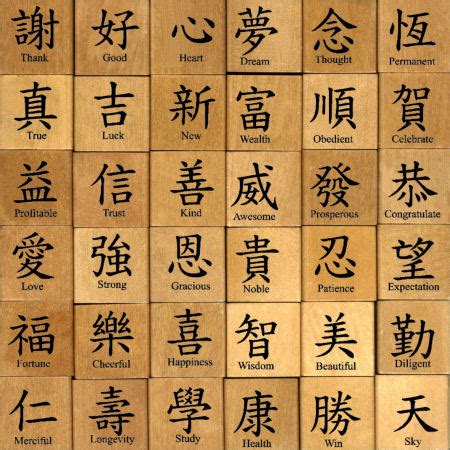 謝 好 心 夢 念 恆
Thank Good Heart Dream Thought Permanent
真 吉 新 富 順 賀
True Luck New Wealth Obedient Celebrate
益 信 善 威 發 恭
Profitable Trust Kind Awesome Prosperous Congratulate
愛 強 恩 貴 忍 望
Love Strong Gracious Noble Patience Expectation
福 樂 喜 智 美 勤
Fortune Cheerful Happiness Wisdom Beautiful Diligent
仁 壽 學 康 勝 天
Merciful Longevity Study Health Win Sky